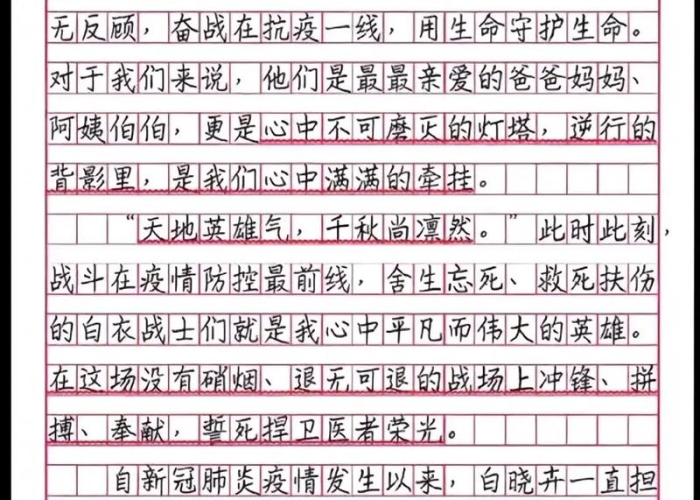 无反顾，奋战在抗疫一线，用生命守护生命。
对于我们来说，他们是最最亲爱的爸爸妈妈、
阿姨伯伯，更是心中不可磨灭的灯塔，逆行的
背影里，是我们心中满满的牵挂。
“天地英雄气，千秋尚凛然。”此时此刻，
战斗在疫情防控最前线，舍生忘死、救死扶伤
的白衣战士们就是我心中平凡而伟大的英雄。
在这场没有硝烟、退无可退的战场上冲锋、拼
搏、奉献，誓死捍卫医者荣光。
自新冠肺炎疫情发生以来，白晓卉一直担